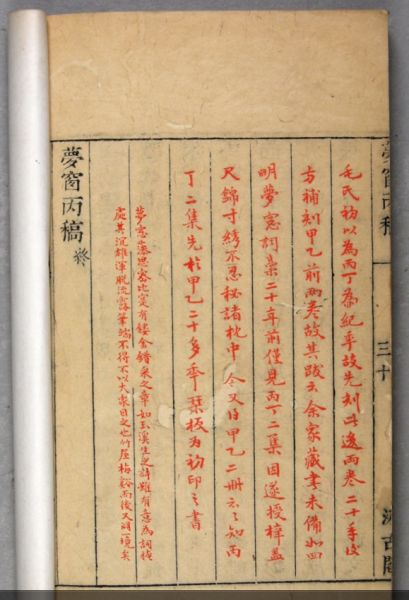 夢窗丙稿 三十 汲古閣
毛氏初以為丙丁為紀年故先刻此後兩卷二十年後
方補刻甲乙前兩卷故其跋云余家藏書未備如四
明夢窓詞稾二十年前僅見丙丁二集因遂授梓蓋
尺錦寸綉不忍秘諸枕中今又得甲乙二冊云云知丙
丁二集先於甲乙二十多年槧板為初印之書
夢窓藻思密比寔有鏤金錯采之章如玉溪生之詩雖有意為詞
處其沉雄渾脫流露筆端不得不以大家目之也竹屋梅谿而後又一境矣
夢窗丙稿 終